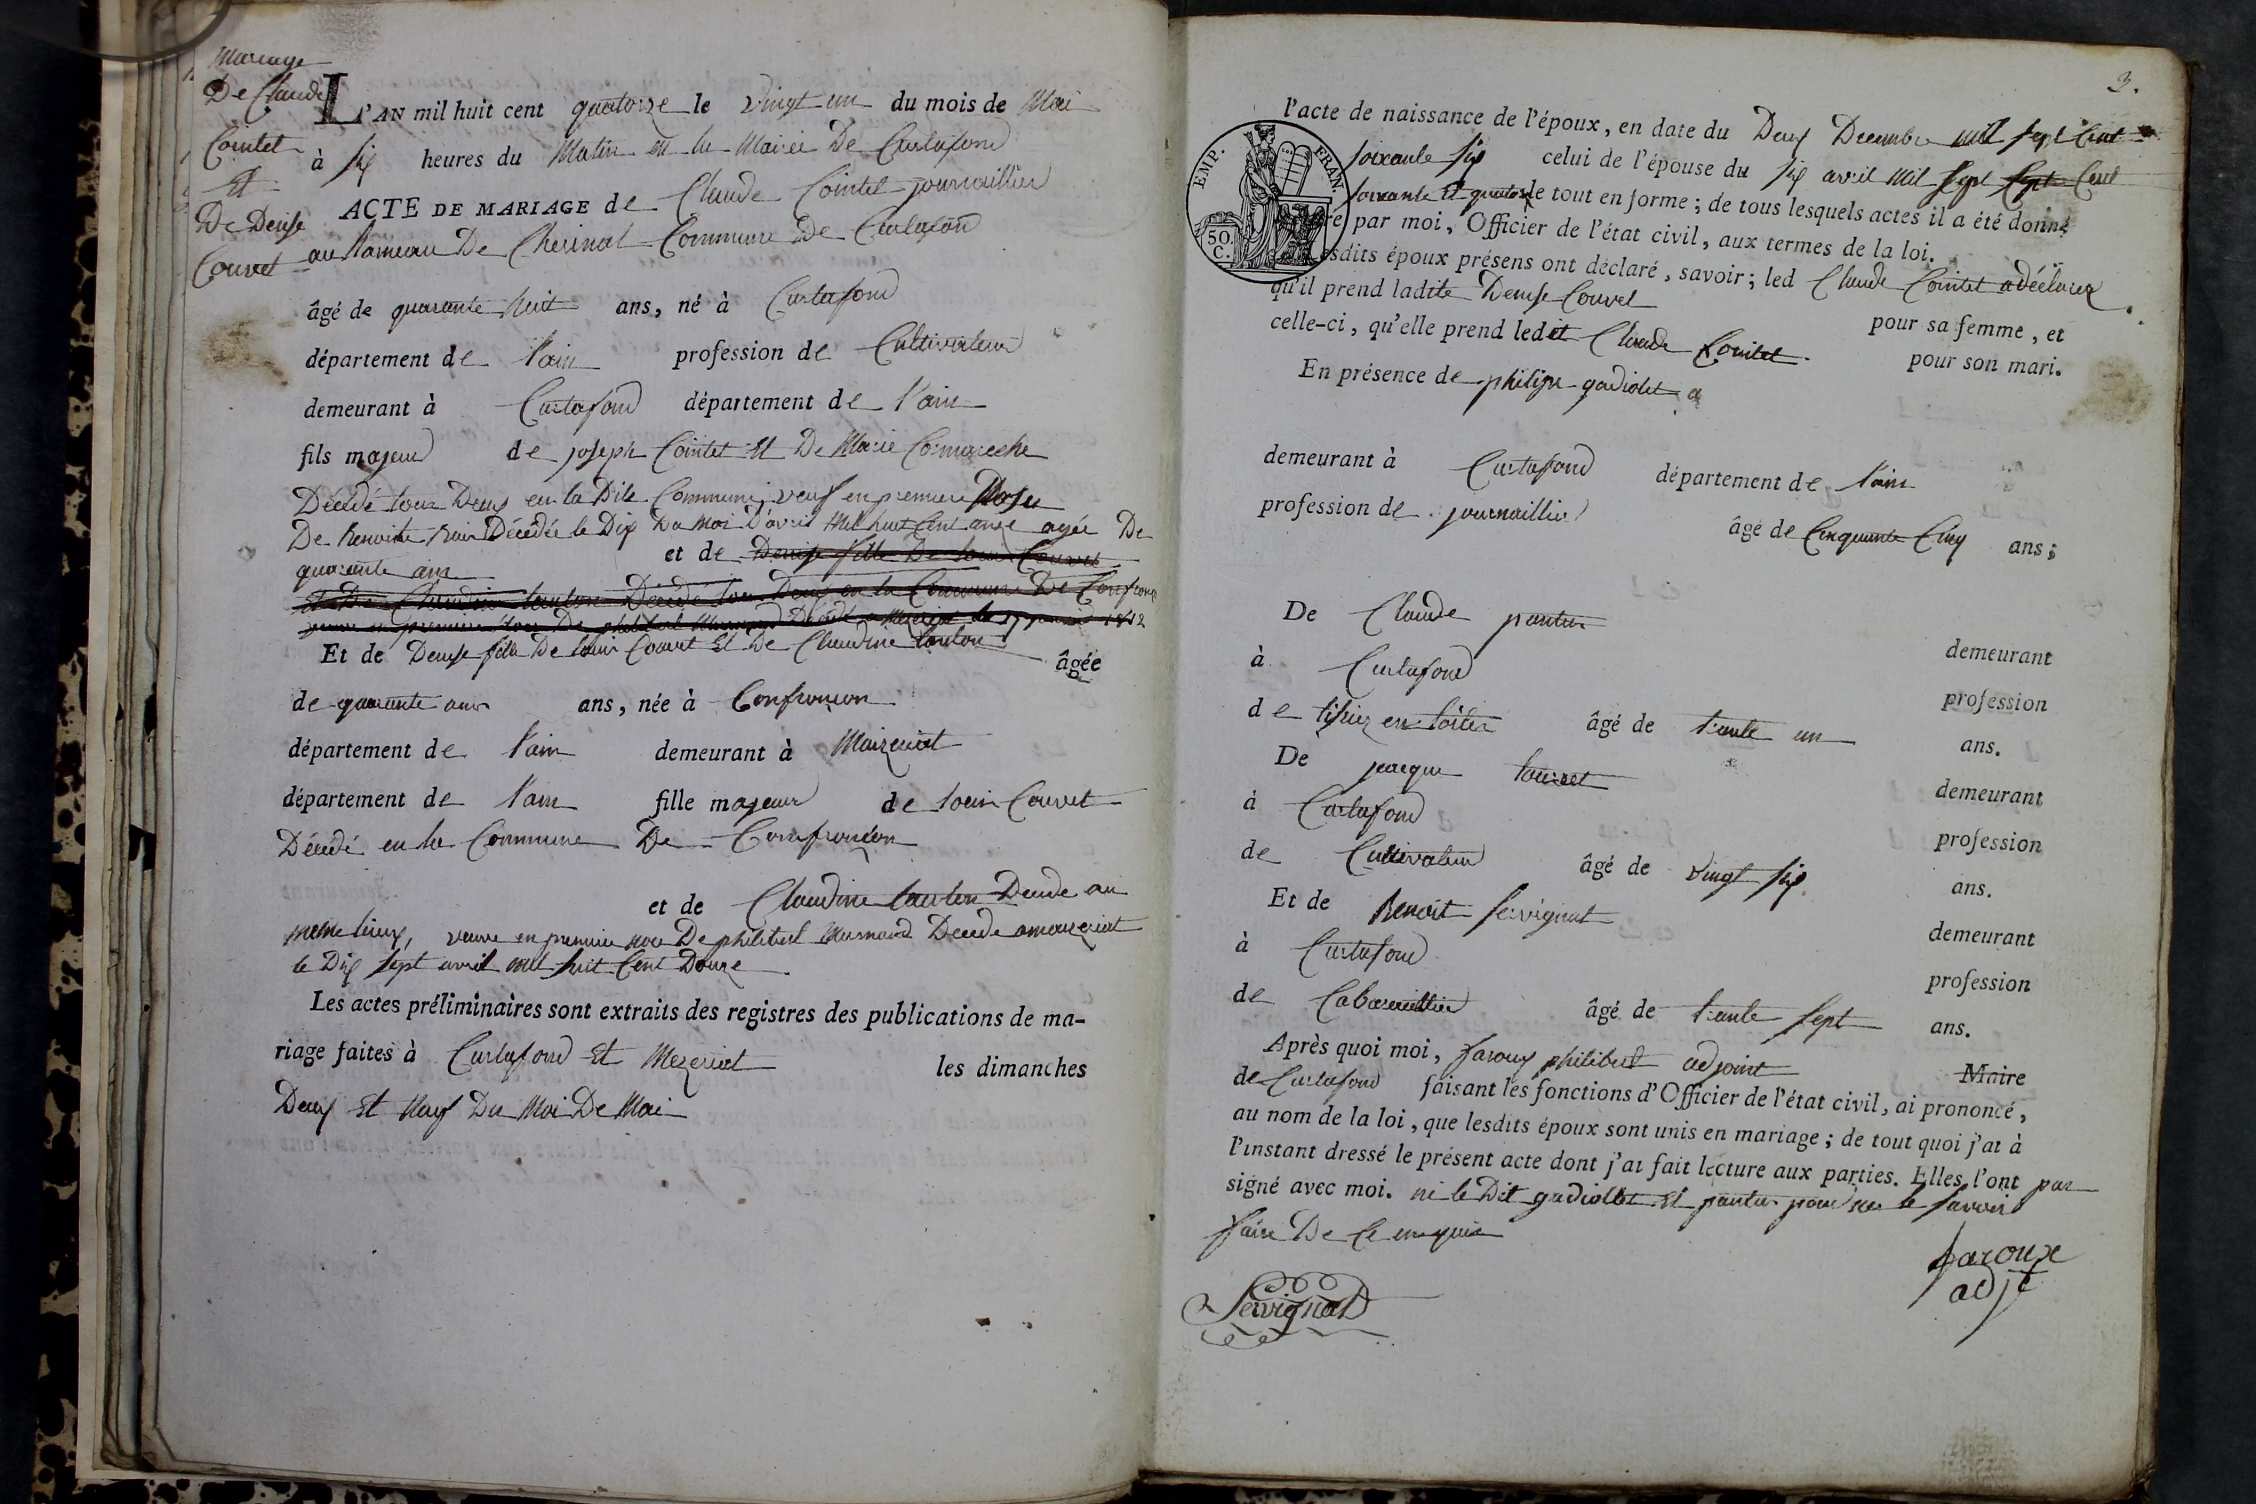 Mariage
De Claude
Cointet
Et
De Denise
Couvet
L'AN mil huit cent quatorze le vingt un du mois de Mai
à six heures du Matin en la Mairie De Curtafond
ACTE DE MARIAGE de Claude Cointet journaillier
au hameau De Cherinal Commune De Curtafond
âgé de quarante huit ans, né à Curtafond
département de l'ain profession de Cultivateur
demeurant à Curtafond département de l'ain
fils majeur de joseph Cointet Et De Marie Cormareche
Décédé tous Deux en la Dite Commune, veuf en premiere Nose
De Benoite Décédée le Dix Du Moi D'avril Mil huit Cent onze agée De
quarante ans et de Denise fille De Couvet
Et De Claudine tonton Décédé tous Deux en la Commune De Confranc
veuve en premiere noce De philibert Décédé a Mezeriat le 17 1812
Et de Denise fille De louis Couvet Et De Claudine tonton âgée
de quarante ans ans, née à Confrançon
département de l'ain demeurant à Maizeriat
département de l'ain fille majeur de louis Couvet
Décédé en la Commune De Confrançon
et de Claudine tonton Décédé au
meme lieux, veuve en premiere noce De philibert Décédé a mezeriat
le Dix sept avril mil huit Cent Douze
Les actes préliminaires sont extraits des registres des publications de ma-
riage faites à Curtafond Et Mezeriat les dimanches
Deux Et Neuf Du Moi De Mai
3.
l'acte de naissance de l'époux, en date du Deux Decembre mil sept Cent
soixante six celui de l'épouse du six avril mil sept sept Cent
soixante et quatorze le tout en forme; de tous lesquels actes il a été donné
re par moi, Officier de l'état civil, aux termes de la loi.
EMP. FRAN
50.
C.
sdits époux présens ont déclaré, savoir; led Claude Cointet a déclarer
qu'il prend ladite Denise Couvet pour sa femme, et
celle-ci, qu'elle prend ledit Claude Cointet pour son mari.
En présence de philipe gadiolet
demeurant à Curtafond département de l'ain
profession de journaillier âgé de Cinquante Cinq ans;
De Claude pantin demeurant
à Curtafond profession
de tisier en toiles âgé de trante un ans.
De jacque demeurant
à Curtafond profession
de Cultivateur âgé de vingt six ans.
Et de Benoit servignat demeurant
à Curtafond profession
de Cabaraittier âgé de trante sept ans.
Après quoi moi, faroux philibert adjoint Maire
de Curtafond faisant les fonctions d'Officier de l'état civil, ai prononcé,
au nom de la loi, que lesdits époux sont unis en mariage; de tout quoi j'ai à
l'instant dressé le présent acte dont j'ai fait lecture aux parties. Elles l'ont pas
signé avec moi. ni le Dit gadiollet Et pantin pour ne le savoir
faire De Ce enquis
faroux
adjt
Servignat